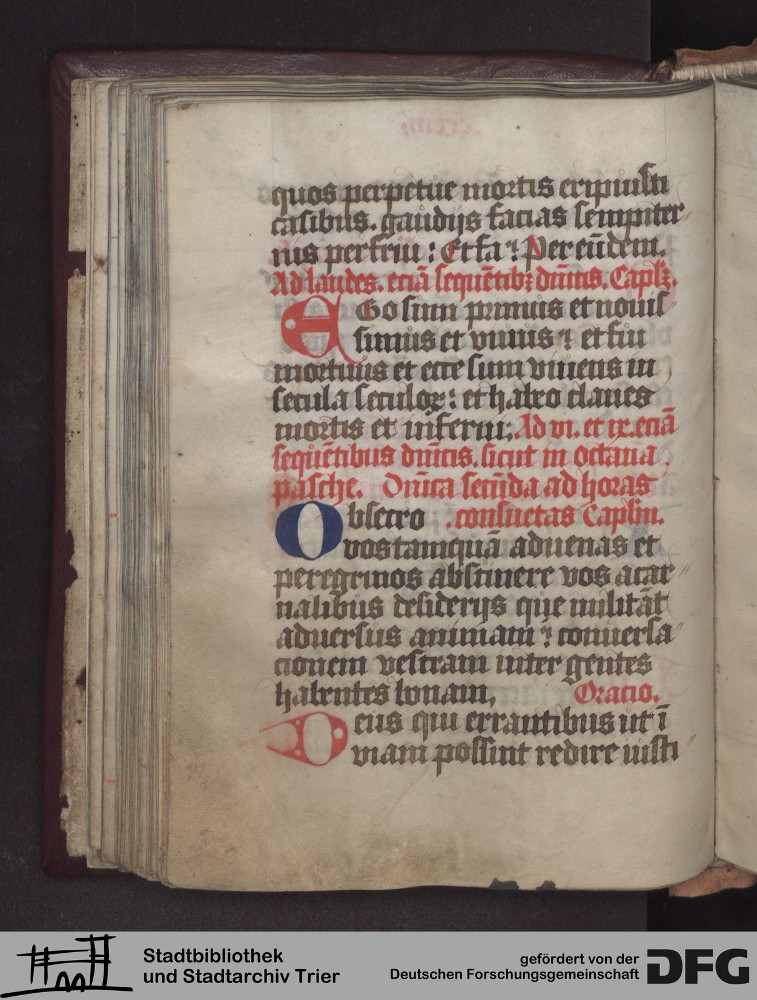 quos perpetue mortis eripuisti
casibus. gaudijs facias sempiter
nis perfrui: Et fa⁊ Per eūdem.
Ad laudes. eciā sequētibꝫ dn̄icis. Capl̄ꝫ.
EGo sum primus et nouis
simus et viuus ⁊ et fui
mortuus et ecce sum viuens in
secula seculoꝝ: et habeo claues
mortis et inferni. Ad vi. et ix. eciā
sequētibus dn̄icis. sicut in octaua
pasche. Dn̄ica secūda ad horas
Obsecro consuetas Caplm̄.
vos tamquā aduenas et
peregrinos abstinere vos a car
nalibus desiderijs que militāt
aduersus animam ⁊ conuersa
cionem vestram inter gentes
habentes bonam, Oracio.
Deus qui errantibus ut ī
viam possint redire iusti
Stadtbibliothek
und Stadtarchiv Trier
gefördert von der
Deutschen Forschungsgemeinschaft
DFG